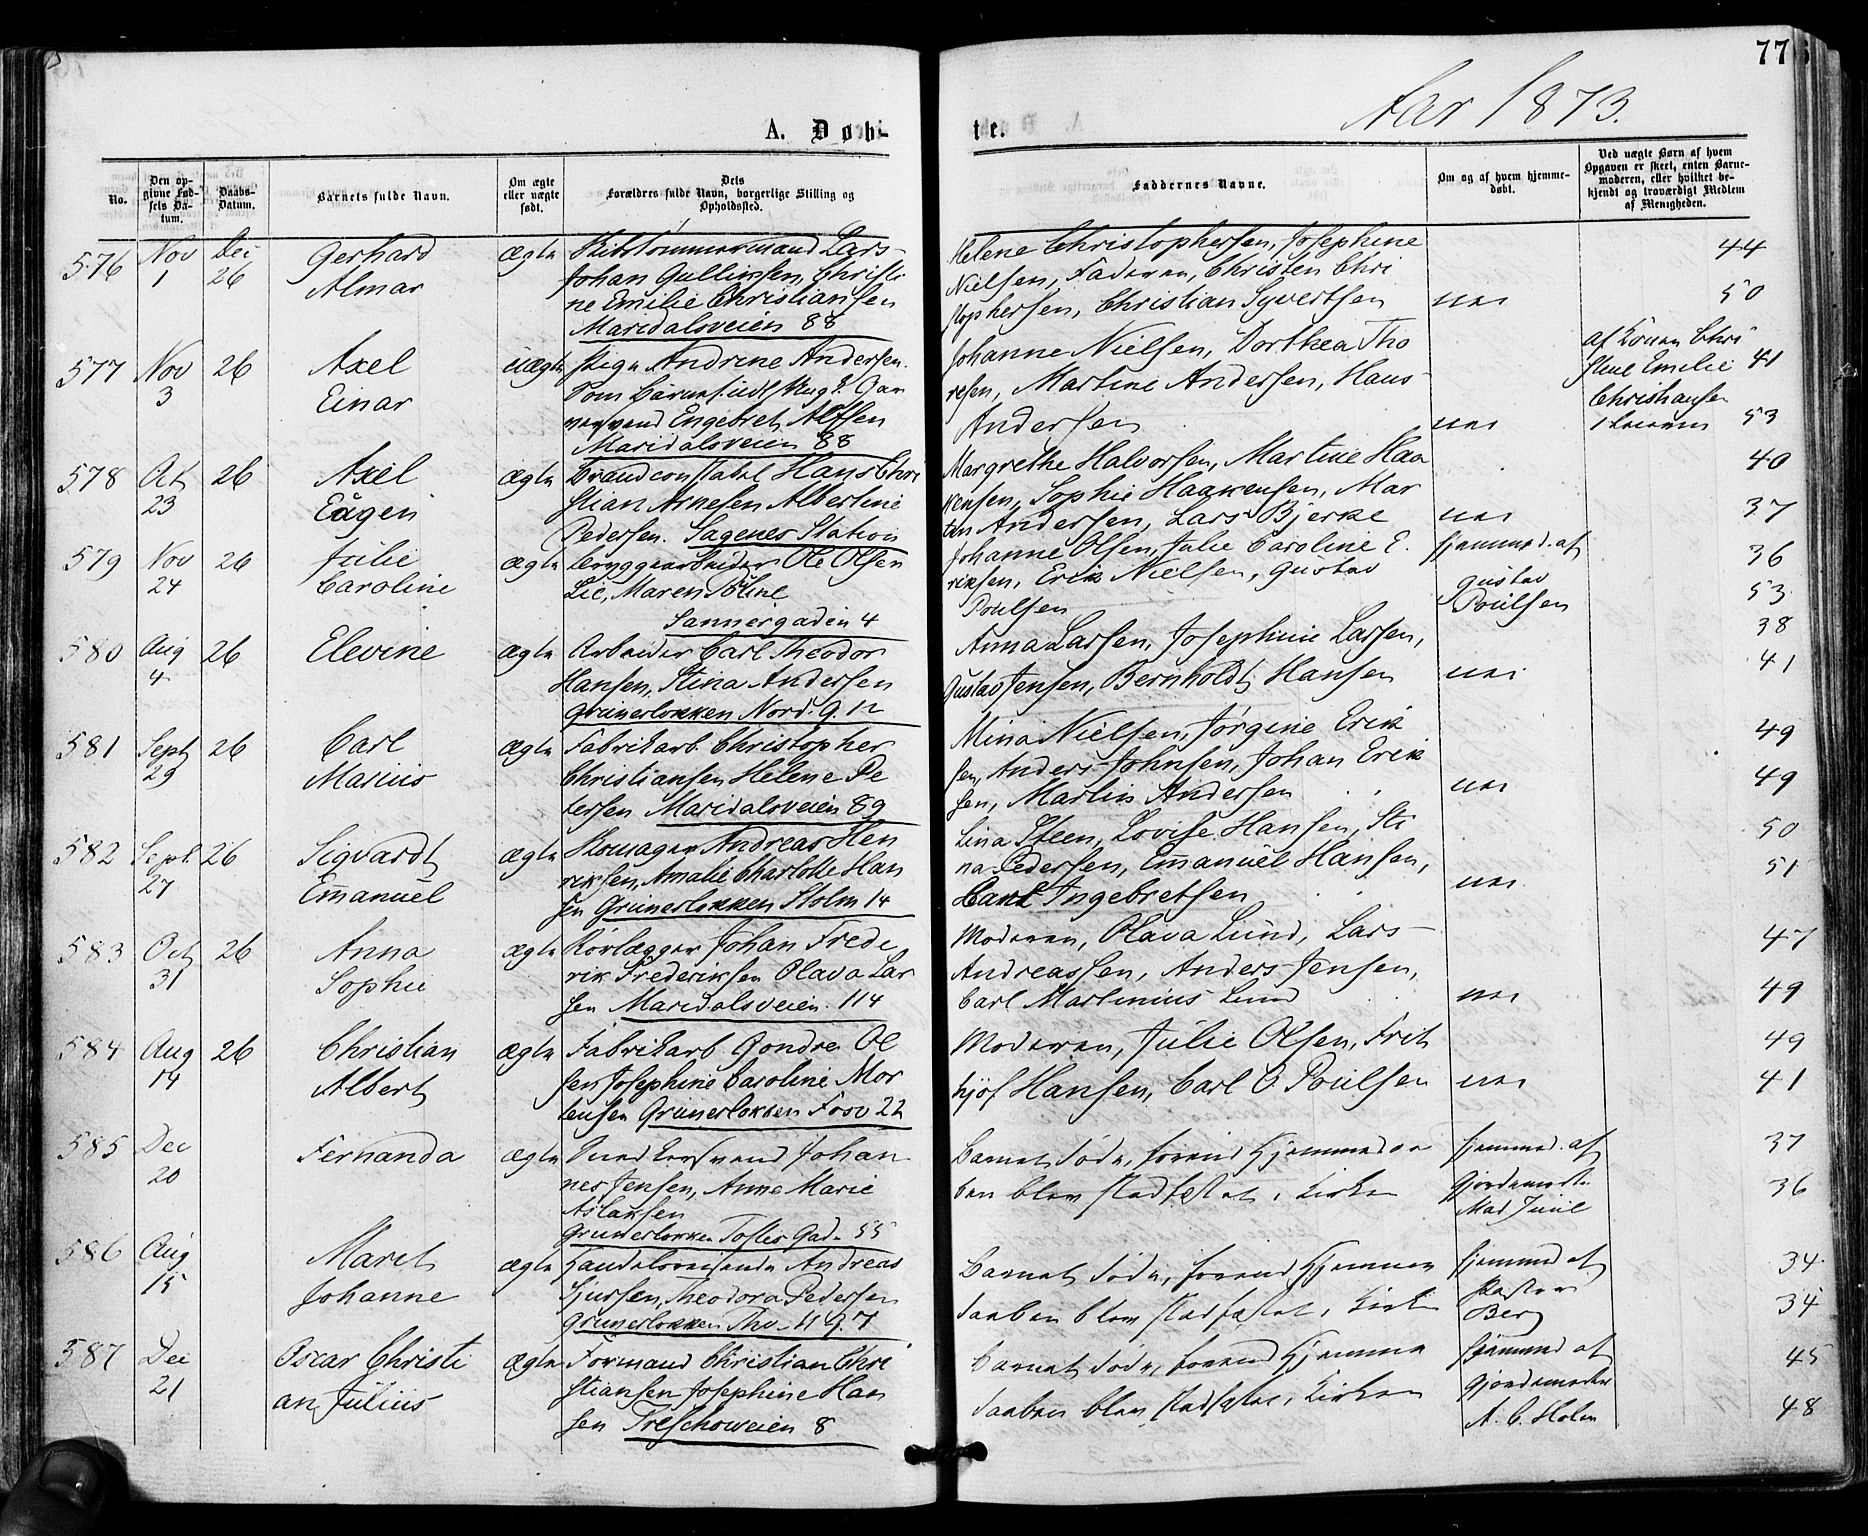 77
Aar 1873.
A. Døb-
te.
No.
Den op-
givne Fød-
sels Da-
tum.
Daabs-
Datum.
Barnets fulde Navn.
Om ægte
eller uægte
født.
Dets
Forældres fulde Navn, borgerlige Stilling og
Opholdssted.
Faddernes Navne.
Om og af hvem hjemme-
døbt.
Ved uægte Børn af hvem
Opgaven er skeet, enten Barne-
moderen, eller hvilket be-
kjendt og troværdigt Medlem
af Menigheden.
576 Nov 1 Dec 26
Gerhard
Almar
ægte
Lars
Johan Gullingsen, Christi
ne Emilie Christiansen
Maridalsveien 88
Helene Christophersen, Josephine
Nielsen, Faderen, Christen Chri
stophersen, Christian Syvertsen
nei
44
50
577 Nov 3 26
Axel
Einar
uægte
Pige Andrine Andersen.
Engebret Alfsen
Maridalsveien 88
Johanne Nielsen, Dorthea Tho
resen, Martine Andersen, Hans
Andersen
nei
af Konen Chri
stine Emilie
Christiansen
41
53
578 Oct 23 26
Axel
Eugen
ægte
Brandconstabel Hans Chri
stian Arnesen Albertine
Pedersen. Sagenes Station
Margrethe Halvorsen, Martine Haa
kensen, Sophie Haakensen, Mar
tin Andersen, Lars Bjerke
nei
40
37
579 Nov 24 26
Julie
Caroline
ægte
Bryggearbeider Ole Olsen
Lie, Maren Poline
Sannergaden 4
Johanne Olsen, Julie Caroline E.
riksen, Erik Nielsen, Gustav
Poulsen
hjemmed. af
Gustav
Poulsen
36
53
580 Aug 4 26
Elevine
ægte
Arbeider Carl Theodor
Hansen, Stina Andersen
Grünerløkken Nord. G. 12
Anna Larsen, Josephine Larsen,
Gustav Jensen, Bernholdt Hansen
nei
38
41
581 Sept 29 26
Carl
Marius
ægte
Fabrikarb. Christopher
Christiansen Helene Pe
tersen Maridalsveien 89
Mina Nielsen, Jørgine Erik
sen, Anders Johnsen, Johan Erik
sen, Martin Andersen
nei
49
49
582 Sept 27 26
Sigvardt
Emanuel
ægte
Skomager Andreas Hen
riksen, Amalie Charlotte Han
sen Grünerløkken Stolm 14
Lina Steen, Lovise Hansen, Sti
na Pedersen, Emanuel Hansen,
Carl Ingebretsen
nei
50
51
583 Oct 31 26
Anna
Sophie
ægte
Rørlægger Johan Frede
rik Frederiksen Olava Lar
sen Maridalsveien. 114
Moderen, Olava Lund, Lars
Andreassen, Anders Jensen,
Carl Martinius Lund
nei
47
49
584 Aug 14 26
Christian
Albert
ægte
Fabrikarb. Gondre Ol
sen Josephine Caroline Mor
tensen Grünerløkken Fosv 22
Moderen, Julie Olsen, Frit
hjof Hansen, Carl O Poulsen
nei
49
41
585 Dec 20
Fernanda
ægte
Snedkersvend Johan
nes Jensen, Anne Marie
Aslaksen
Grünerløkken Toftes Gade 55
Barnet døde, forend Hjemmedaa
ben blev stadfæstet i Kirken
hjemmed. af
Gjordemoder
Mad Juul
37
36
586 Aug 15
Maret
Johanne
ægte
Handelsreisende Andreas
Sjursen, Theodora Pedersen
Grünerløkken Thv. M G. 7
Barnet døde, forend Hjemme
daaben blev stadfæstet i Kirken
hjemmed af
Pastor
Berg
34
34
587 Dec 21
Oscar Christi
an Julius
ægte
Formand Christian Chri
stiansen Josephine Han
sen Treschowveien 8
Barnet døde, forend Hjemme
daaben blev stadfæstet i Kirken
hjemmed af
Gjordemoder
A. C. Holm
45
48